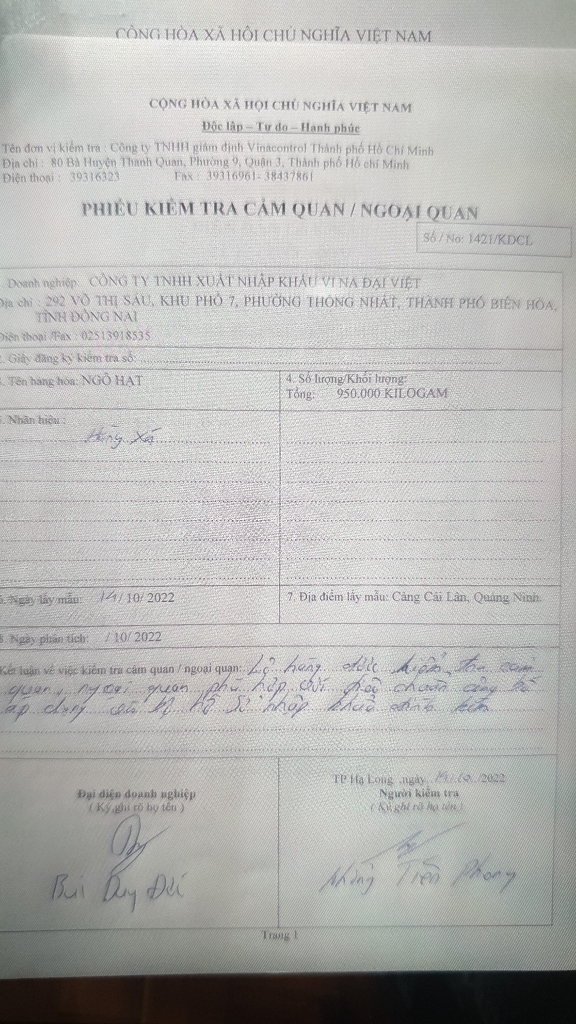 CỘNG HÒA XÃ HỘI CHỦ NGHĨA VIỆT NAM
CỘNG HÒA XÃ HỘI CHỦ NGHĨA VIỆT NAM
Độc lập – Tự do – Hạnh phúc
Tên đơn vị kiểm tra : Công ty TNHH giám định Vinacontrol Thành phố Hồ Chí Minh
Địa chỉ : 80 Bà Huyện Thanh Quan, Phường 9, Quận 3, Thành phố Hồ chí Minh
Điện thoại : 39316323 Fax : 39316961- 38437861
PHIẾU KIỂM TRA CẢM QUAN / NGOẠI QUAN
Số / No: 1421/KDCL
Doanh nghiệp: CÔNG TY TNHH XUẤT NHẬP KHẨU VI NA ĐẠI VIỆT
Địa chỉ : 292 VÕ THỊ SÁU, KHU PHỐ 7, PHƯỜNG THỐNG NHẤT, THÀNH PHỐ BIÊN HÒA,
TỈNH ĐỒNG NAI
Điện thoại /Fax : 02513918535
2. Giấy đăng ký kiểm tra số:
3. Tên hàng hóa: NGÔ HẠT
4. Số lượng/Khối lượng:
Tổng: 950.000 KILOGAM
5. Nhãn hiệu :
Hàng Xá
6. Ngày lấy mẫu: 14/ 10/ 2022
7. Địa điểm lấy mẫu: Cảng Cái Lân, Quảng Ninh.
8. Ngày phân tích: / 10/ 2022
Kết luận về việc kiểm tra cảm quan / ngoại quan: Lô hàng được kiểm tra cảm
quan, ngoại quan phù hợp với tiêu chuẩn công bố
áp dụng của bộ hồ sơ nhập khẩu đính kèm
TP Hạ Long ,ngày, /2022
Đại diện doanh nghiệp
( Ký,ghi rõ họ tên )
Người kiểm tra
( Ký,ghi rõ họ tên )
Bùi Duy Đức
Tiến Phong
Trang 1